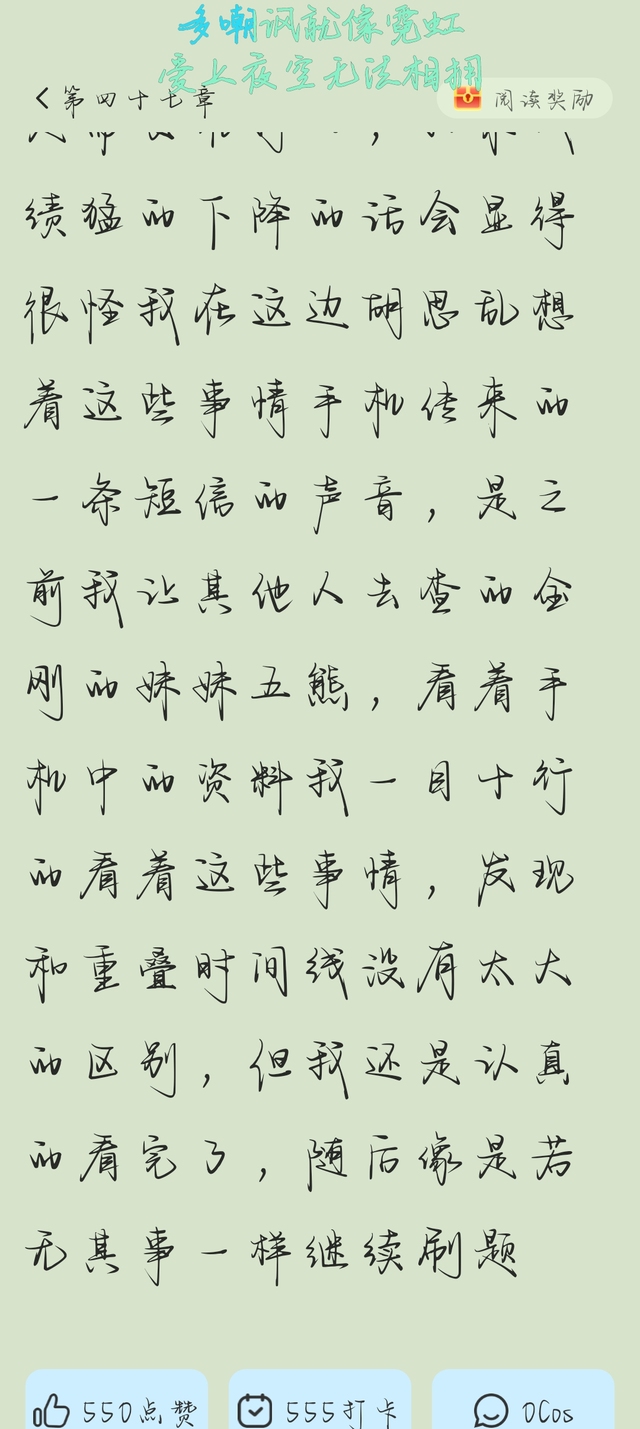 多嘲讽就像霓虹
爱上夜空无法相拥
第四十七章
阅读奖励
绩猛的下降的话会显得
很怪我在这边胡思乱想
着这些事情手机传来的
一条短信的声音，是之
前我让其他人去查的金
刚的妹妹五熊，看着手
机中的资料我一目十行
的看着这些事情，发现
和重叠时间线没有太大
的区别，但我还是认真
的看完了，随后像是若
无其事一样继续刷题
550点赞
555打卡
0Cos